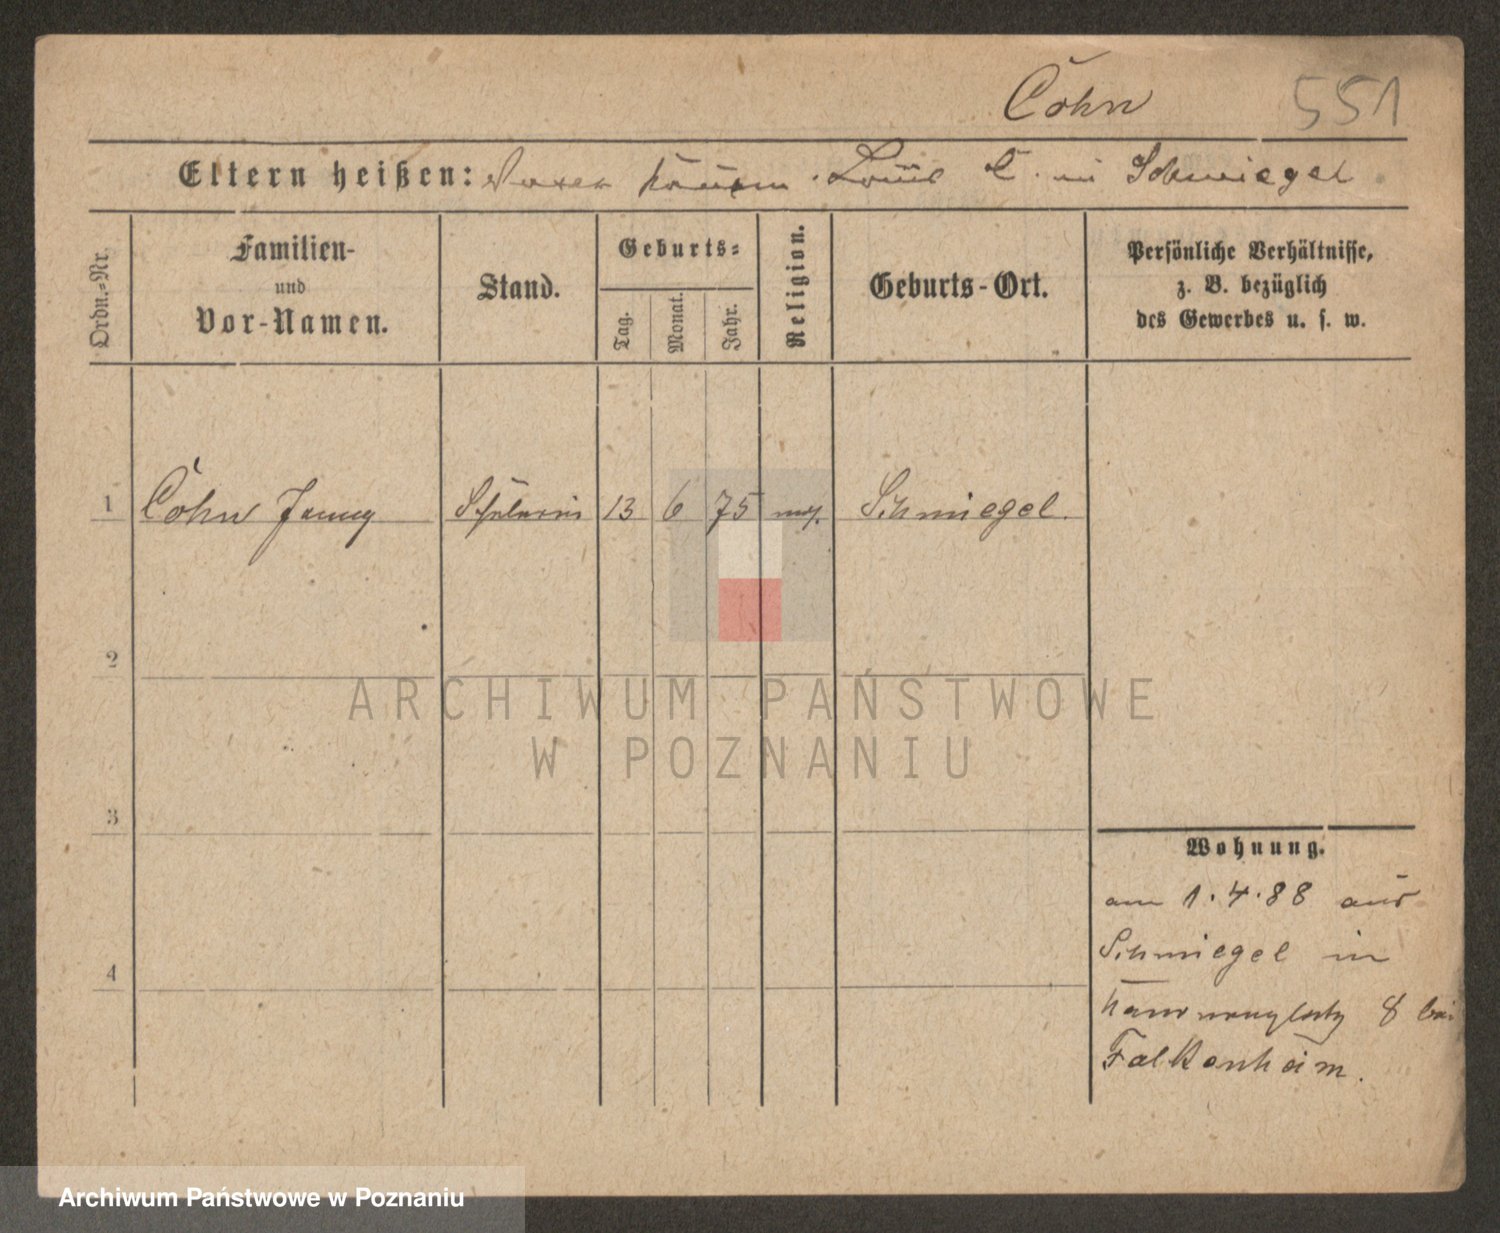 Cohn 551
Eltern heißen: Vater Kaufm. Louis C. in Schmiegel
Ordn.=Nr.
Familien-
und
Vor-Namen.
Stand.
Geburts=
Tag.
Monat.
Jahr.
Religion.
Geburts-Ort.
Persönliche Verhältnisse,
z. B. bezüglich
des Gewerbes u. s. w.
1 Cohn Jenny Schülerin 13 6 75 mos. Schmiegel.
2
3
4
ARCHIWUM PAŃSTWOWE
W POZNANIU
Wohnung.
am 1.4.88 aus
Schmiegel in
8 bei
Falkenheim.
Archiwum Państwowe w Poznaniu